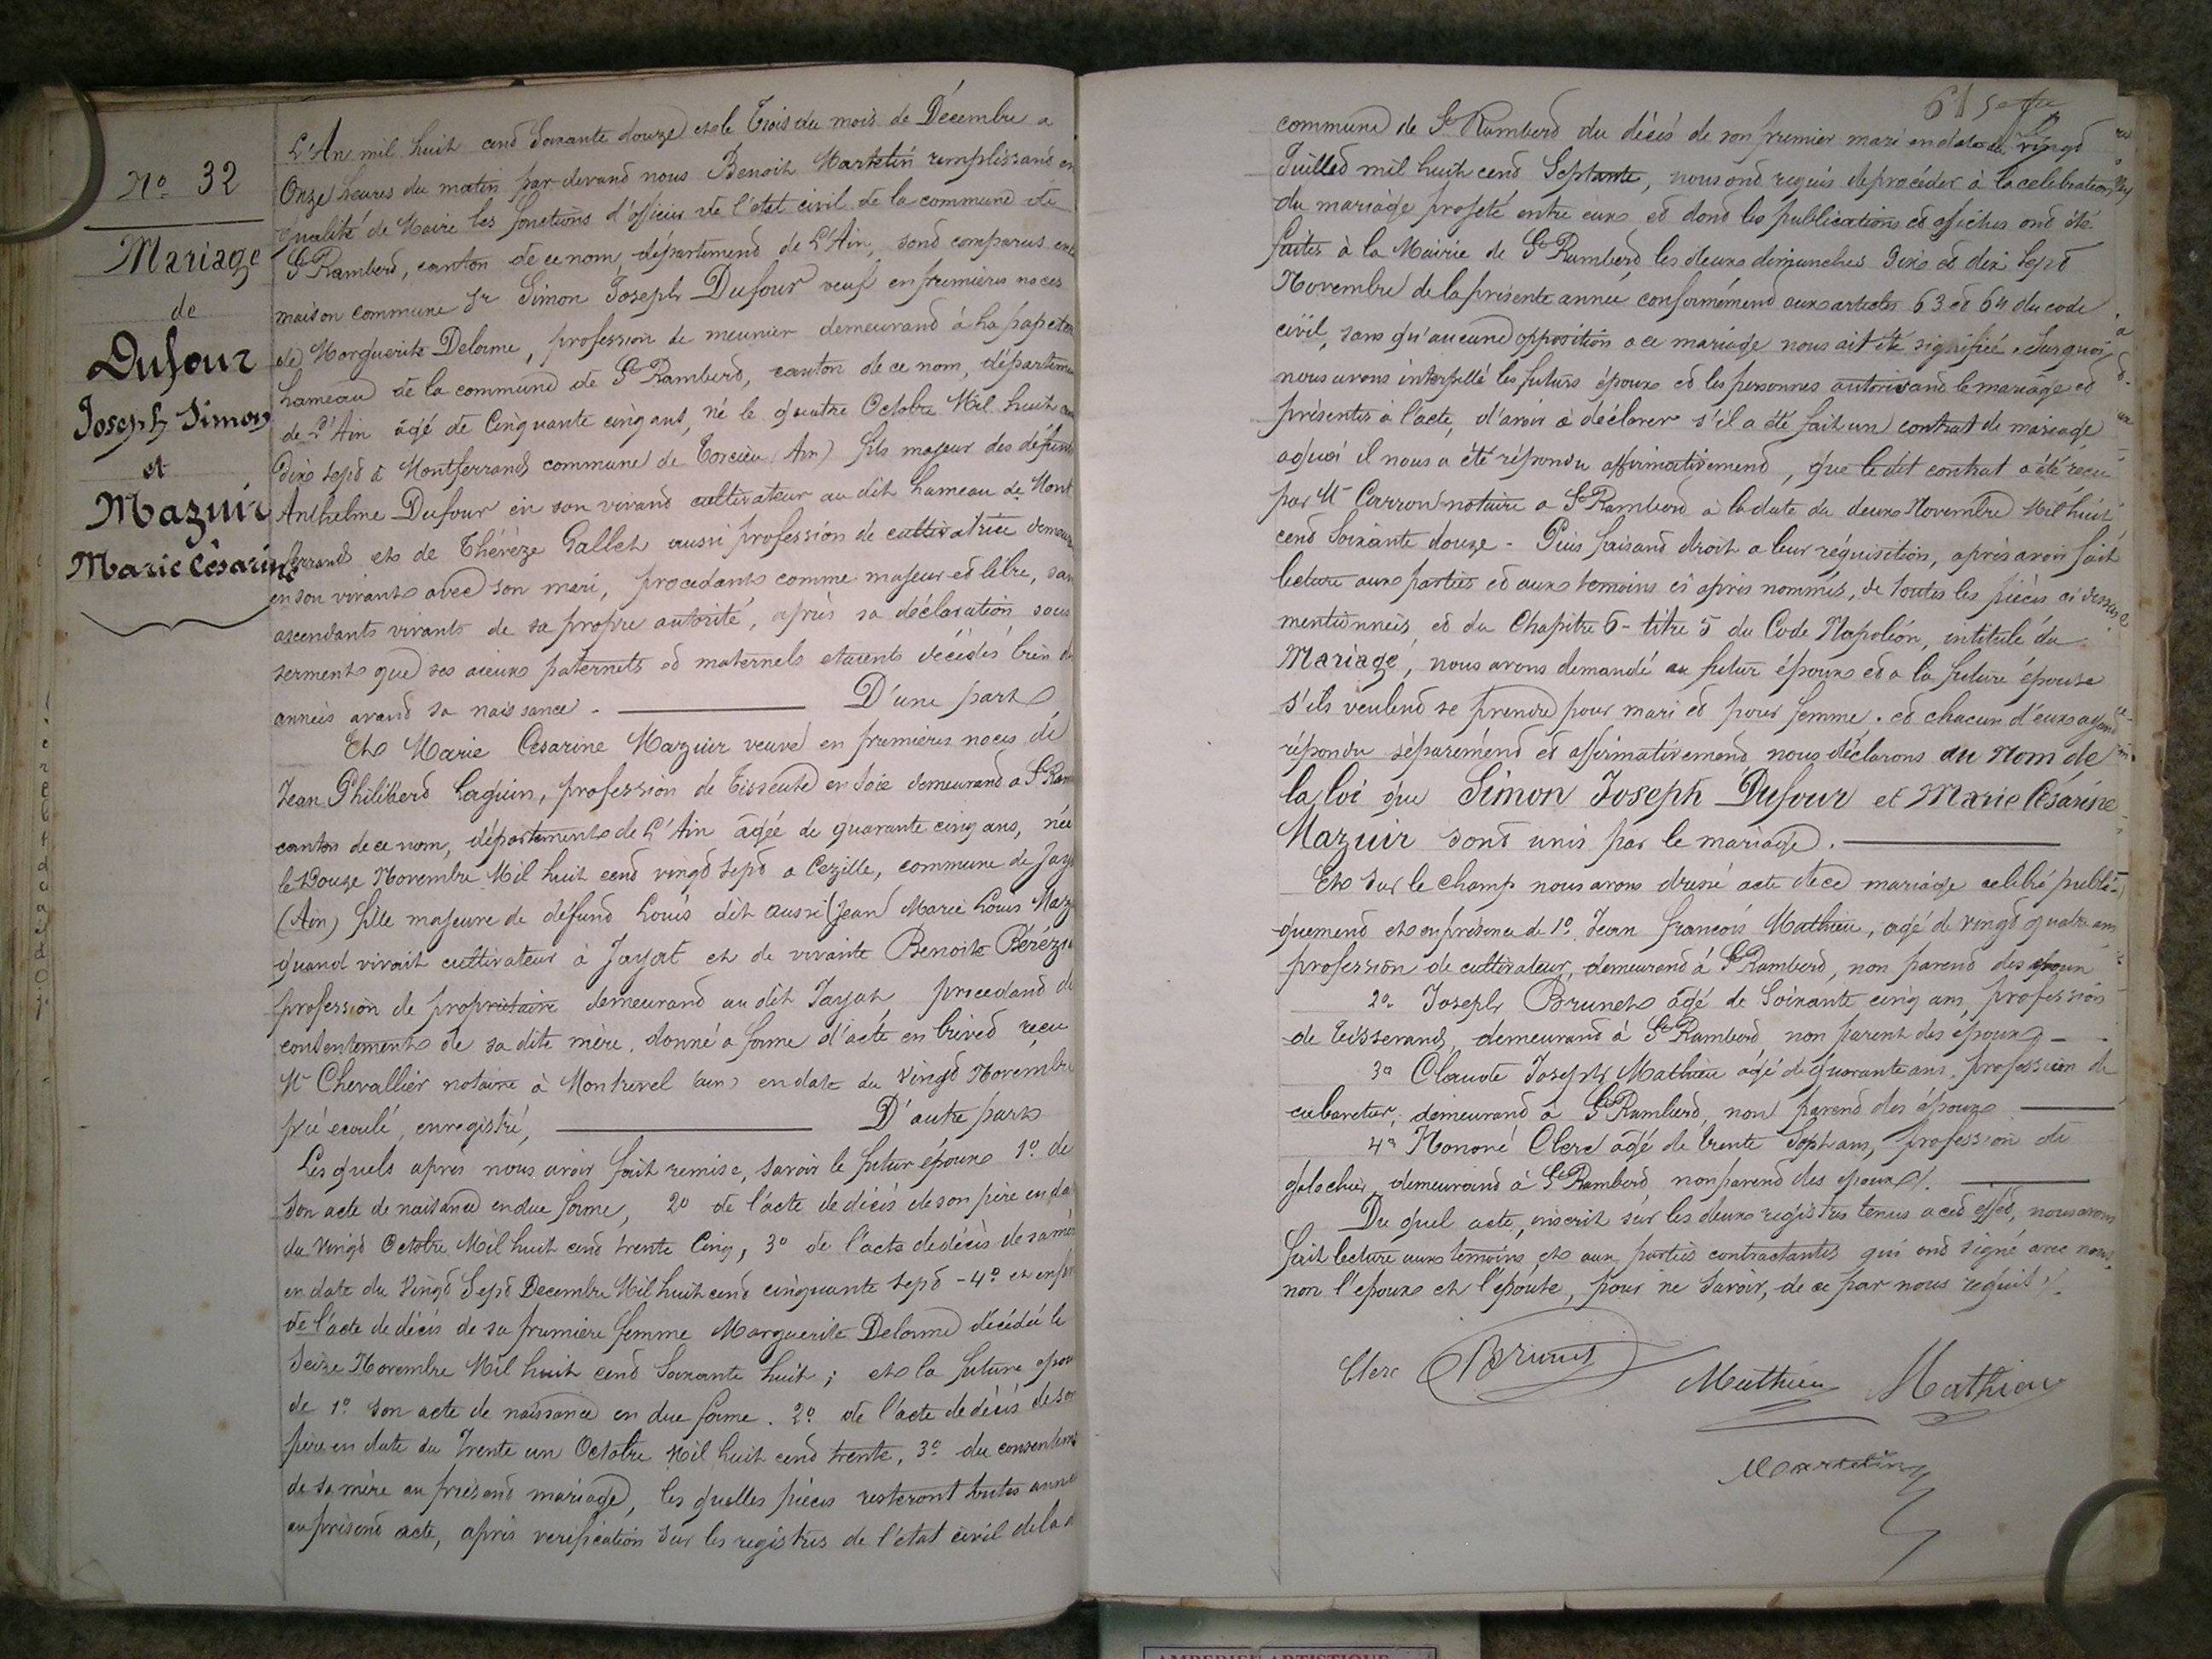 No 32
Mariage
de
Dufour
Joseph Simon
et
Mazuir
Marie Césarine
L'An mil huit cent Soixante douze et le Trois du mois de Décembre a
Onze heures du matin par devant nous Benoit Martelin remplissant en
qualité de Maire les fonctions d'officier de l'etat civil de la commune de
St Rambert, canton de ce nom, département de L'Ain, sont comparus en la
maison commune Sr Simon Joseph Dufour veuf en premières noces
de Marguerite Delorme, profession de meunier demeurant à La papeterie
hameau de la commune de St Rambert, canton de ce nom, départeme
de L'Ain âgé de Cinquante cinq ans, né le quatre Octobre Mil huit cen
Dix sept à Montferrand commune de Torcieu (Ain) fils majeur des défunts
Anthelme Dufour en son vivant cultivateur au dit hameau de Mont
ferrand et de Thérèze Gallet aussi profession de cultivatrice demeura
en son vivant avec son mari, procedant comme majeur et libre, san
ascendants vivants de sa propre autorité, après sa déclaration sous
serment que ses aieux paternels et maternels etaient décédés bien de
années avant sa naissance. — D'une part
Et Marie Césarine Mazuir veuve en premières noces de
Jean Philibert Laguin, profession de Tisseuse en Soie demeurant a St Ram
canton de ce nom, département de L'Ain âgée de quarante cinq ans, née
le Douze Novembre Mil huit cent vingt sept a Cezille, commune de Jaya
(Ain) fille majeure de défunt Louis dit aussi (Jean Marie Louis Maz
quand vivait cultivateur à Jayat et de vivante Benoite Bérézia
profession de propriétaire demeurant au dit Jayat, procedant du
consentement de sa dite mère, donné a forme d'acte en brevet reçu
Me Chevallier notaire à Montrevel (ain) en date du Vingt Novembre
pré ecoulé, enregistré, — D'autre part
Les quels après nous avoir fait remise, savoir le futur époux 1o de
son acte de naissance en due forme, 2o de l'acte de décès de son père en da
du Vingt Octobre Mil huit cent trente Cinq, 3o de l'acte de décès de sa mère
en date du Vingt Sept Decembre Mil huit cent cinquante sept - 4o et enfin
de l'acte de décès de sa première femme Marguerite Delorme décédée le
Seize Novembre Mil huit cent Soixante huit; et la future epou
de 1o son acte de naissance en due forme. 2o de l'acte de décès de son
père en date du Trente un Octobre Mil huit cent trente, 3o du consentem
de sa mère au présent mariage, les quelles pièces resteront toutes anne
au présent acte, après verification sur les registres de l'état civil de la
61
commune de St Rambert du décès de son premier mari en date du vingt
Juillet mil huit cent Septante, nous ont requis de procéder à la celebration
du mariage projeté entre eux et dont les publications et affiches ont été
faites à la Mairie de St Rambert les deux dimanches Dix et dix Sept
Novembre de la présente année conformément aux articles 63 et 64 du code
civil, sans qu'aucune opposition a ce mariage nous ait été signifiée. Sur quoi,
nous avons interpellé les futurs époux et les personnes autorisant le mariage et
présentes à l'acte, d'avoir à déclarer s'il a été fait un contrat de mariage
a quoi il nous a été répondu affirmativement, que le dit contrat a été reçu
par Me Carron notaire a St Rambert à la date du deux Novembre Mil huit
cent Soixante douze - Puis faisant droit a leur réquisition, après avoir fait
lecture aux parties et aux temoins ci après nommés, de toutes les pièces ci dessus
mentionnées, et du Chapitre 6 - titre 5 du Code Napoléon, intitulé du
Mariage, nous avons demandé au futur époux et a la future épouse
s'ils veulent se prendre pour mari et pour femme. et chacun d'eux ayant
répondu séparément et affirmativement nous déclarons au Nom de
la loi que Simon Joseph Dufour et Marie Césarine
Mazuir sont unis par le mariage. —
Et sur le champ nous avons dressé acte de ce mariage celebré publi-
quement et en présence de 1o Jean François Mathieu, agé de vingt quatre ans
profession de cultivateur, demeurant à St Rambert, non parent des époux
2o Joseph Brunet âgé de Soixante cinq ans, profession
de tisserand, demeurant à St Rambert non parent des époux -
3o Claude Joseph Mathieu agé de quarante ans, profession de
cabaretier, demeurant à St Rambert non parent des époux —
4o Honoré Clerc âgé de trente Sept ans, profession de
galochier, demeurant à St Rambert non parent des époux. —
Du quel acte, inscrit sur les deux registres tenus a cet effet, nous avons
fait lecture aux temoins, et aux parties contractantes qui ont signé avec nous,
non l'epoux et l'épouse, pour ne savoir, de ce par nous requis.
Clerc Brunet Mathieu Mathieu
Martelin